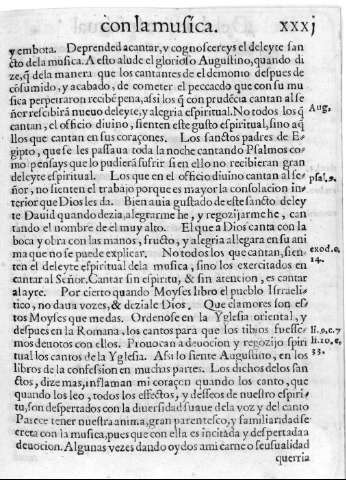 con la musica. xxxj
y embota. Deprended a cantar, y cognoscereys el deleyte san
cto dela musica. A esto alude el glorioso Augustino, quando di
ze, q̃ dela manera que los cantantes de el demonio despues de
cōsumido, y acabado, de cometer el peccado que con su mu
sica perpetraron recibē pena, assi los q̃ con prudēcia cantan al se
ñor rescibirā nueuo deleyte, y alegria espiritual. No todos los q̃ Aug.
cantan, el officio diuino, sienten este gusto espiritual, sino aq̃
llos que cantan en sus coraçones. Los sanctos padres de E-
gipto, que se les passaua toda la noche cantando Psalmos co-
mo pensays que lo pudierā sufrir si en ello no recibieran gran
deleyte espiritual. Los que en el officio diuino cantan al se- psal. 9.
ñor, no sienten el trabajo porque es mayor la consolacion in-
terior que Dios les da. Bien auia gustado de este sancto deley
te Dauid quando dezia, alegrarme he, y regozijarme he, can
tando el nombre de el muy alto. El que a Dios canta con la
boca y obra con las manos, fructo, y alegria allegara en su ani
ma que no se puede explicar. No todos los que cantan, sien- exod. c.
ten el deleyte espiritual dela musica, sino los exercitados en 14.
cantar al Señor. Cantar sin espiritu, & sin atencion, es cantar
al ayre. Por cierto quando Moyses libro el pueblo Israeli-
tico, no daua vozes, & dziale Dios. Que clamores son es-
tos Moyses que me das. Ordenose en la Yglesia oriental, y
despues en la Romana, los cantos para que los tibios fuesse- li. 9. c. 7
mos deuotos con ellos. Prouocan a deuocion y regozijo spiri li. 10. c.
tual los cantos de la Yglesia. Assi lo siente Augustino, en los 33.
libros de la confession en muchas partes. Los dichos delos san
ctos, dize mas, inflaman mi coraçon quando los canto, que
quando los leo, todos los effectos, y desseos de nuestro espiri-
tu, son despertados con la diuersidad suaue dela voz y del canto
Parece tener nuestra anima, gran parentesco, y familiaridad se
creta con la musica, pues que con ella es incitada y despertada a
deuocion. Algunas vezes dando oydos ami carne o sensualidad
querria